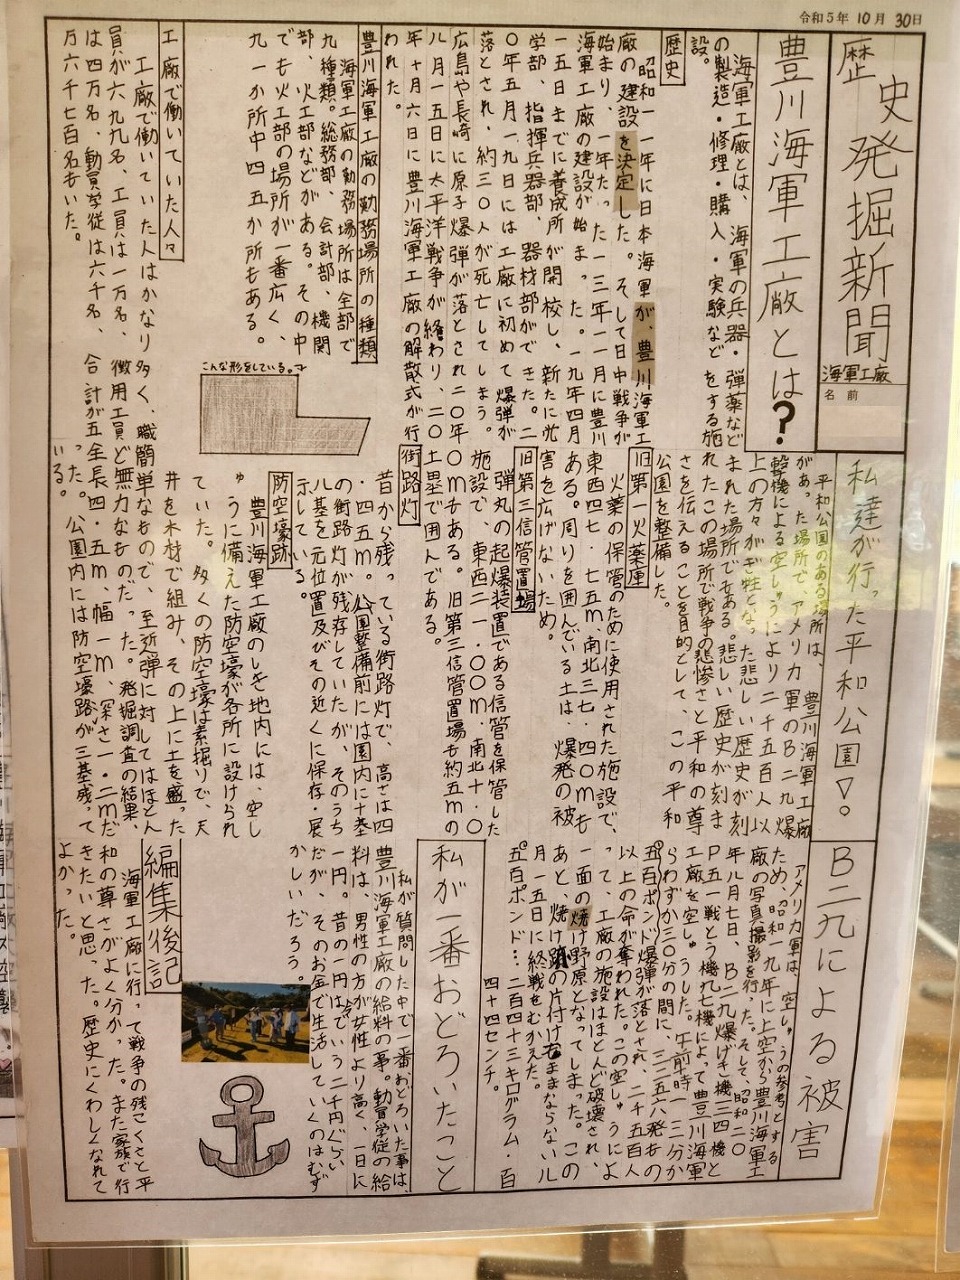 令和5年 10月 30日
歴史発掘新聞
海軍工廠
名前
豊川海軍工廠とは?
海軍工廠とは、海軍の兵器・弾薬など
の製造・修理・購入・実験などをする施
設。
歴史
昭和一一年に日本海軍が、豊川海軍工
廠の建設を決定した。そして日中戦争が
始まり、一年たった一三年一一月に豊川
海軍工廠の建設が始まった。一九年四月
一五日までに養成所が開校し、新たに光
学部、指揮兵器部、器材部ができた。二
〇年五月一九日には工廠に初めて爆弾が
落とされ、約三〇人が死亡してしまう。
広島や長崎に原子爆弾が落とされ二〇年
八月一五日に太平洋戦争が終わり、二〇
年十月六日に豊川海軍工廠の解散式が行
われた。
豊川海軍工廠の勤務場所の種類
海軍工廠の勤務場所は全部で
九種類。総務部、会計部、機関
部、火工部などがある。その中
でも火工部の場所が一番広く、
九一か所中四五か所もある。
こんな形をしている。
工廠で働いていた人々
工廠で働いていた人はかなり多く、職
員が六九九名、工員は一万名、徴用工員
は四万名、動員学徒は六千名、合計が五
万六千七百名もいた。
私達が行った平和公園▽。
平和公園のある場所は、豊川海軍工廠
があった場所で、アメリカ軍のB二九爆
撃機による空しゅうにより二千五百人以
上の方々がぎ牲となった悲しい歴史が刻
まれた場所である。悲しい歴史が刻ま
れたこの場所で戦争の悲惨さと平和の尊
さを伝えることを目的として、この平和
公園を整備した。
旧第一火薬庫
火薬の保管のために使用された施設で、
東西四七・七五m、南北三七・四〇mも
ある。周りを囲んでいる土は、爆発の被
害を広げないため。
旧第三信管置場
弾丸の起爆装置である信管を保管した
施設で、東西二一・〇〇m、南北十・〇
〇mもある。旧第三信管置場も約五mの
土塁で囲んである。
街路灯
昔から残っている街路灯で、高さは四
・四五m。公園整備前には園内に十基
の街路灯が残存していたが、そのうち
八基を元位置及びその近くに保存・展
示している。
防空壕跡
豊川海軍工廠のしき地内には、空し
ゅうに備えた防空壕が各所に設けられ
ていた。多くの防空壕は素掘りで、天
井を木材で組み、その上に土を盛った
簡単なもので、至近弾に対してはほとん
ど無力なものだった。発掘調査の結果、
全長四・五m、幅一m、深さ一・二mだ
った。公園内には防空壕跡が三基残って
いる。
B二九による被害
アメリカ軍は、空しゅうの参考とする
ため、昭和一九年に上空から豊川海軍工
廠の写真撮影を行った。そして、昭和二〇
年八月七日、B二九爆げき機一三四機と
P五一戦とう機九七機によって豊川海軍
工廠を空しゅうした。午前十時一三分か
らわずか三〇分の間に、三二五八発もの
五百ポンド爆弾が落とされ、二千五百人
以上の命が奪われた。この空しゅうによ
って、工廠の施設はほとんど破壊され、
一面の焼け野原となってしまった。この
あと、焼け跡の片付けもままならない八
月一五日に終戦をむかえた。
五百ポンド…二百四十三キログラム・百
四十四センチ。
私が一番おどろいたこと
私が質問した中で一番おどろいた事は、
豊川海軍工廠の給料の事。動員学徒の給
料は、男性の方が女性より高く、一日に
一円。昔の一円は今でいう二千円ぐらい
だが、そのお金で生活していくのはむず
かしいだろう。
編集後記
海軍工廠に行って戦争の残こくさと平
和の尊さがよく分かった。また家族で行
きたいと思った。歴史にくわしくなれて
よかった。